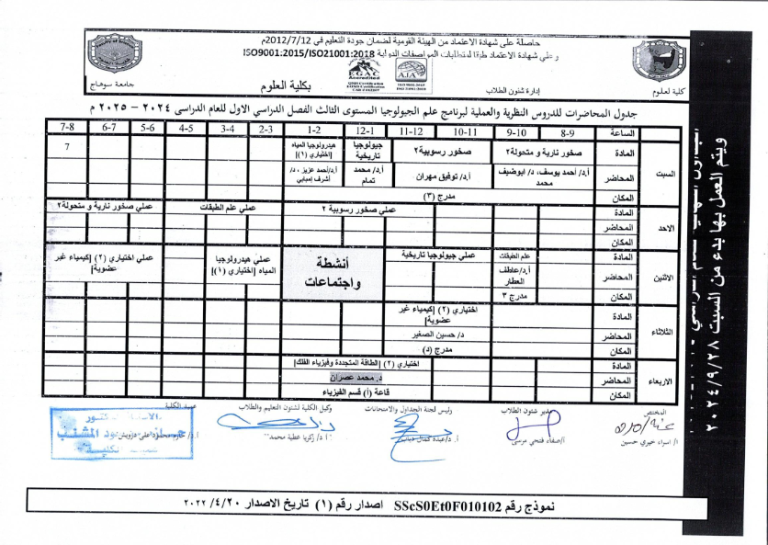 حاصلة على شهادة الاعتماد من الهيئة القومية لضمان جودة التعليم في 2012/7/12م
وعلى شهادة الاعتماد طبقا لمتطلبات المواصفات الدولية ISO9001:2015/ISO21001:2018
EGAC
AJA
جامعة سوهاج
بكلية العلوم
إدارة شئون الطلاب
كلية العلوم
جدول المحاضرات للدروس النظرية والعملية لبرنامج علم الجيولوجيا المستوى الثالث الفصل الدراسي الاول للعام الدراسى ٢٠٢٤ – ٢٠٢٥ م
الساعة 8-9 9-10 10-11 11-12 12-1 1-2 2-3 3-4 4-5 5-6 6-7 7-8
السبت
المادة صخور نارية و متحولة٢ صخور رسوبية٢ جيولوجيا تاريخية هيدرولوجيا المياه [اختياري (١)] 7
المحاضر أ.د/ أحمد يوسف، د/ ابوضيف محمد أ.د/ توفيق مهران أ.د/ محمد تمام أ.د/أحمد عزيز ، د/ أشرف إمبابي
المكان مدرج (٣)
الاحد
المادة عملي صخور رسوبية ٢ عملي علم الطبقات عملي صخور نارية و متحولة٢
المحاضر
المكان
الاثنين
المادة علم الطبقات عملي جيولوجيا تاريخية أنشطة واجتماعات عملي هيدرولوجيا المياه [اختياري (١)] عملي اختياري (٢) [كيمياء غير عضوية]
المحاضر أ.د/عاطف العطار
المكان مدرج ٣
الثلاثاء
المادة اختياري (٢) [كيمياء غير عضوية]
المحاضر د/ حسين الصغير
المكان مدرج (د)
الاربعاء
المادة اختياري (٢) [الطاقة المتجددة وفيزياء الفلك]
المحاضر د. محمد عصران
المكان قاعة (أ) قسم الفيزياء
المختص مدير شئون الطلاب رئيس لجنة الجداول والامتحانات وكيل الكلية لشئون التعليم والطلاب عميد الكلية
ا/ اسراء خيري حسين ا/صفاء فتحي مرسى أ.د/ زكريا عطية محمد
ويتم العمل بها بدء من السبت ٢٠٢٤/٩/٢٨
نموذج رقم SScS0Et0F010102 اصدار رقم (١) تاريخ الاصدار ٢٠٢٢/٤/٢٠